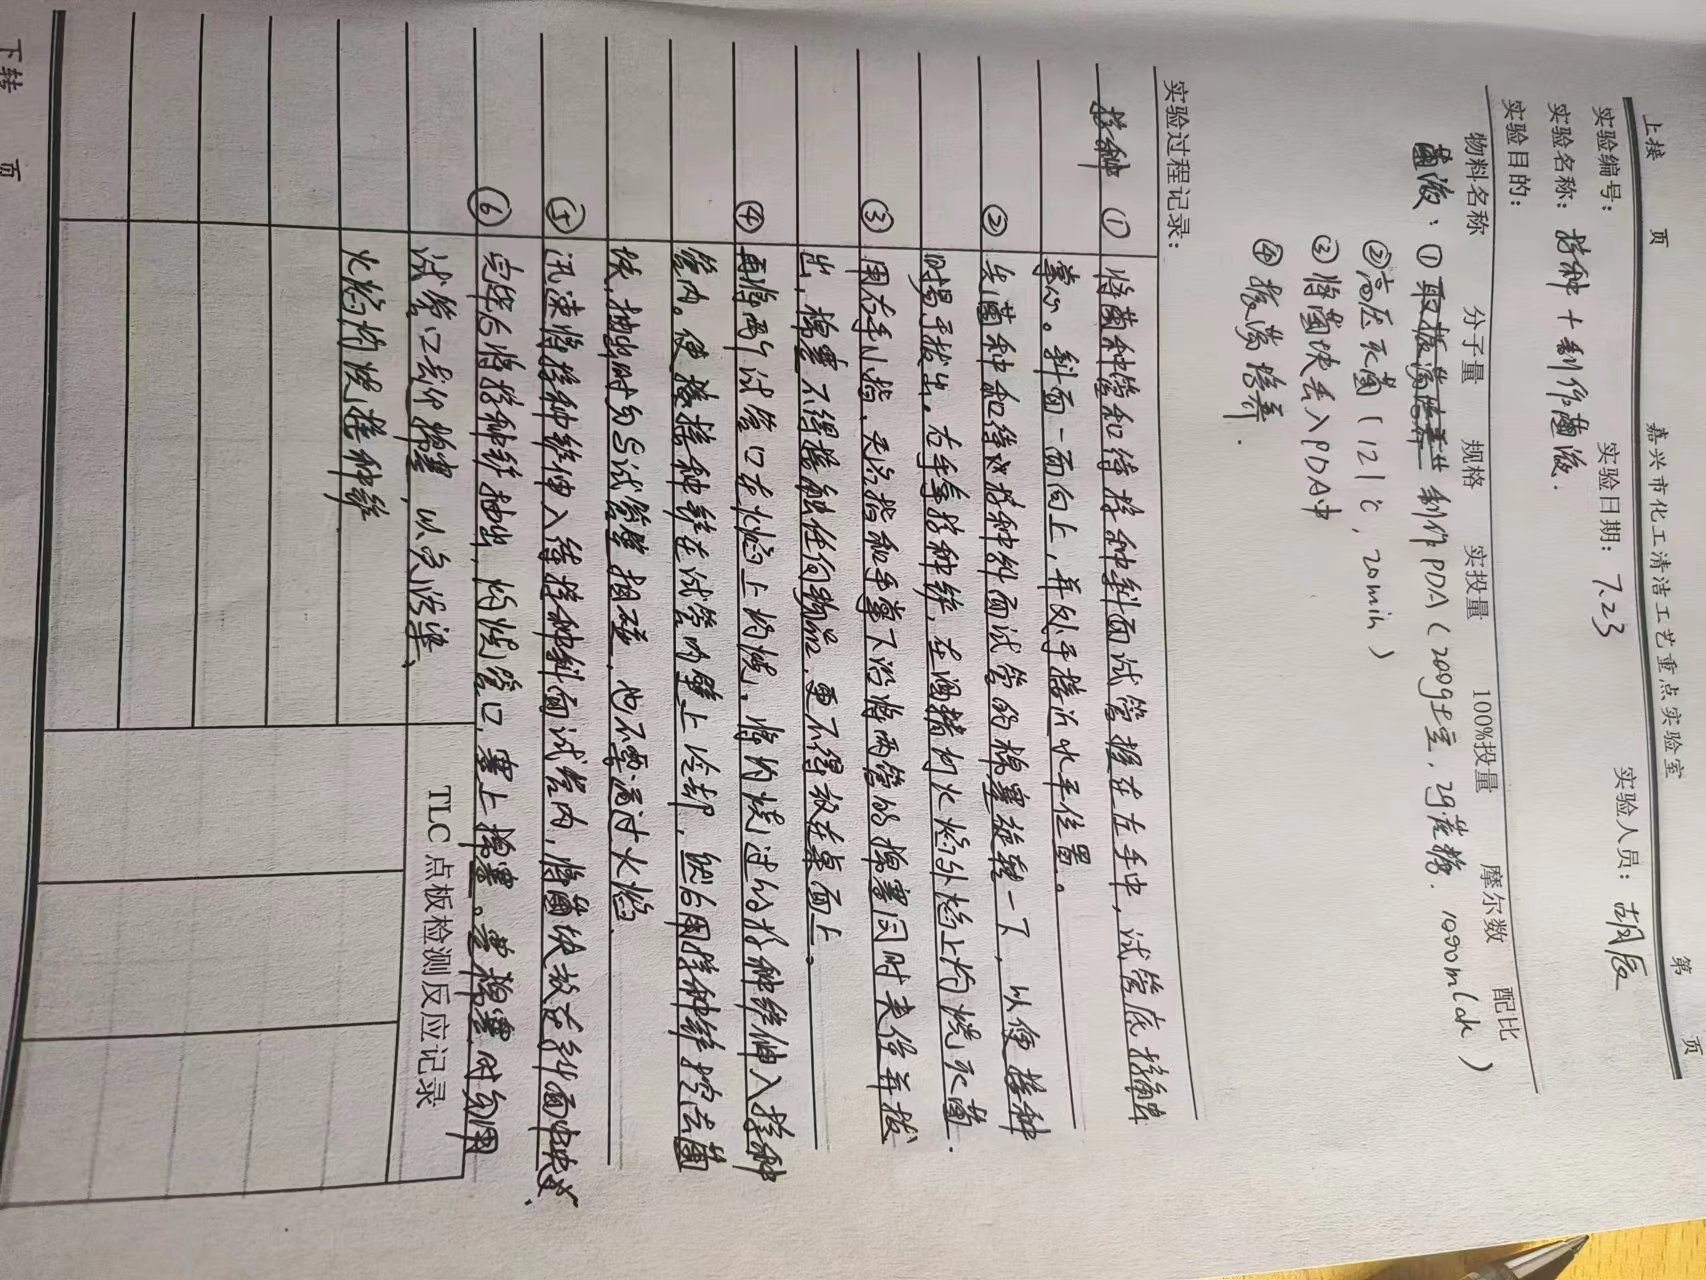 上接 页 嘉兴市化工清洁工艺重点实验室 第 页
实验编号: 实验日期: 7.23 实验人员: 胡辰
实验名称: 接种+制作菌液.
实验目的:
物料名称 分子量 规格 实投量 100%投量 摩尔数 配比
菌液: ① 制作PDA(200g土豆, 2g蔗糖. 1000ml水)
②高压灭菌(121℃, 20min)
③将菌块丢入PDA中
④振荡培养.
实验过程记录:
接种 ① 将菌种管和待接种斜面试管握在左手中,试管底接触
掌心。斜面一面向上,并处于接近水平位置。
② 先菌种和待接种外面试管的棉塞旋转一下,以便接种
时易于拔出。右手拿接种锥,在酒精灯火焰外焰上灼烧灭菌.
③ 用右手小指、无名指和手掌下沿将两管的棉塞同时夹住并拔
出,棉塞不得接触任何物品,更不得放在桌面上。
④ 再将两个试管口在火焰上灼烧,将灼烧过的接种锥伸入接种
管内。使接种锥在试管内壁上冷却,然后用接种锥挖去菌
块,抽出时勿与试管壁相碰,也不要通过火焰.
⑤ 迅速将接种锥伸入待接种斜面试管内,将菌块放在斜面中央
⑥ 完毕后将接种锥抽出,灼烧管口,塞上棉塞。塞棉塞时勿用
试管口去迎棉塞,以免污染、
火焰灼烧接种锥
TLC点板检测反应记录
下转 页